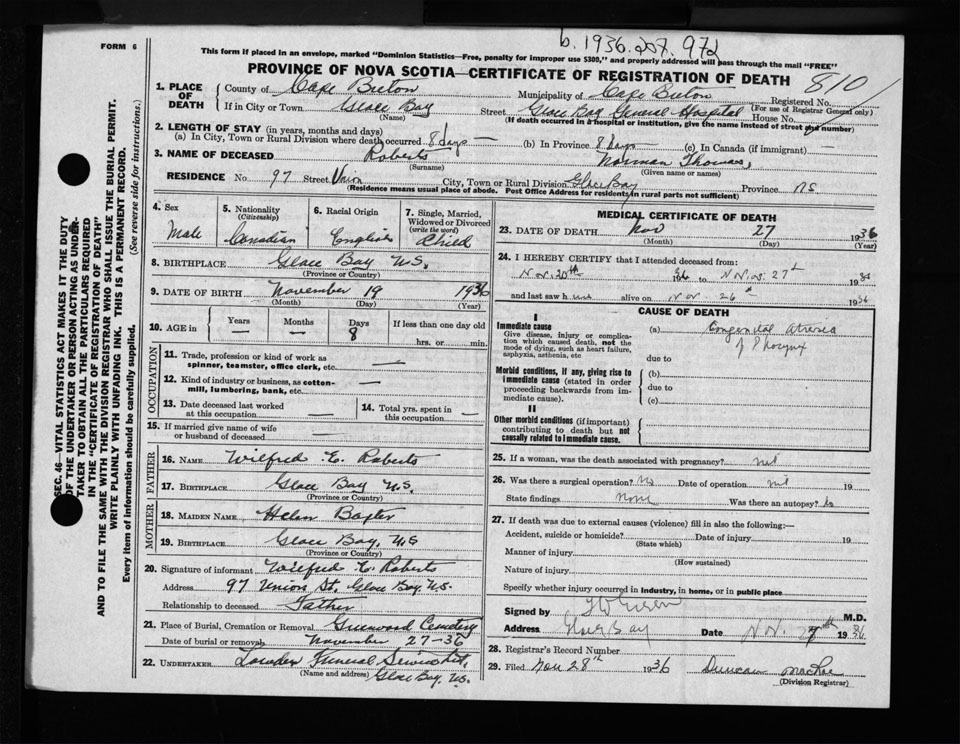 b. 1936. 207. 972
FORM 6
This form if placed in an envelope, marked "Dominion Statistics—Free, penalty for improper use $300," and properly addressed will pass through the mail "FREE"
PROVINCE OF NOVA SCOTIA—CERTIFICATE OF REGISTRATION OF DEATH
810
1. PLACE OF DEATH
County of Cape Breton Municipality of Cape Breton Registered No.
(For use of Registrar General only)
If in City or Town Glace Bay Street Glace Bay General Hospital House No.
(Name) (If death occurred in a hospital or institution, give the name instead of street and number)
2. LENGTH OF STAY (in years, months and days)
(a) In City, Town or Rural Division where death occurred 8 days — (b) In Province 8 days — (c) In Canada (if immigrant) —
3. NAME OF DECEASED Roberts Norman Thomas
(Surname) (Given name or names)
RESIDENCE No. 97 Street Union City, Town or Rural Division Glace Bay Province NS
(Residence means usual place of abode. Post Office Address for residents in rural parts not sufficient)
4. Sex
Male
5. Nationality (Citizenship)
Canadian
6. Racial Origin
English
7. Single, Married, Widowed or Divorced (write the word)
Child
8. BIRTHPLACE Glace Bay N.S.
(Province or Country)
9. DATE OF BIRTH November 19 1936
(Month) (Day) (Year)
10. AGE in Years — Months — Days 8 If less than one day old
hrs. or min.
OCCUPATION
11. Trade, profession or kind of work as spinner, teamster, office clerk, etc. —
12. Kind of industry or business, as cotton-mill, lumbering, bank, etc. —
13. Date deceased last worked at this occupation —
14. Total yrs. spent in this occupation —
15. If married give name of wife or husband of deceased —
FATHER
16. NAME Wilfred E. Roberts
17. BIRTHPLACE Glace Bay N.S.
(Province or Country)
MOTHER
18. MAIDEN NAME Helen
19. BIRTHPLACE Glace Bay, N.S
(Province or Country)
20. Signature of informant Wilfred E. Roberts
Address 97 Union St. Glace Bay, N.S.
Relationship to deceased Father
21. Place of Burial, Cremation or Removal Greenwood Cemetery
Date of burial or removal November 27-36
22. UNDERTAKER Funeral Service Ltd.
(Name and address) Glace Bay, N.S.
MEDICAL CERTIFICATE OF DEATH
23. DATE OF DEATH Nov 27 1936
(Month) (Day) (Year)
24. I HEREBY CERTIFY that I attended deceased from:
Nov. 20th 36 to Nov. 27th 1936
and last saw h im alive on Nov 26th 1936
CAUSE OF DEATH
I
Immediate cause
Give disease, injury or complication which caused death, not the mode of dying, such as heart failure, asphyxia, asthenia, etc
(a) Congenital Atresia
of Pharynx
due to
Morbid conditions, if any, giving rise to immediate cause (stated in order proceeding backwards from immediate cause).
(b)
due to
(c)
II
Other morbid conditions (if important) contributing to death but not causally related to immediate cause.
25. If a woman, was the death associated with pregnancy?
26. Was there a surgical operation? No Date of operation nil 19
State findings none Was there an autopsy? No
27. If death was due to external causes (violence) fill in also the following:—
Accident, suicide or homicide? Date of injury 19
(State which)
Manner of injury
(How sustained)
Nature of injury
Specify whether injury occurred in industry, in home, or in public place
Signed by M.D.
Address Glace Bay Date Nov. 27th 1936
28. Registrar's Record Number
29. Filed Nov 28th 1936 Duncan MacRae
(Division Registrar)
SEC. 46—VITAL STATISTICS ACT MAKES IT THE DUTY
OF THE UNDERTAKER OR PERSON ACTING AS UNDER-
TAKER TO OBTAIN ALL THE PARTICULARS REQUIRED
IN THE "CERTIFICATE OF REGISTRATION OF DEATH"
AND TO FILE THE SAME WITH THE DIVISION REGISTRAR WHO SHALL ISSUE THE BURIAL PERMIT.
WRITE PLAINLY WITH UNFADING INK. THIS IS A PERMANENT RECORD.
Every item of information should be carefully supplied. (See reverse side for instructions.)